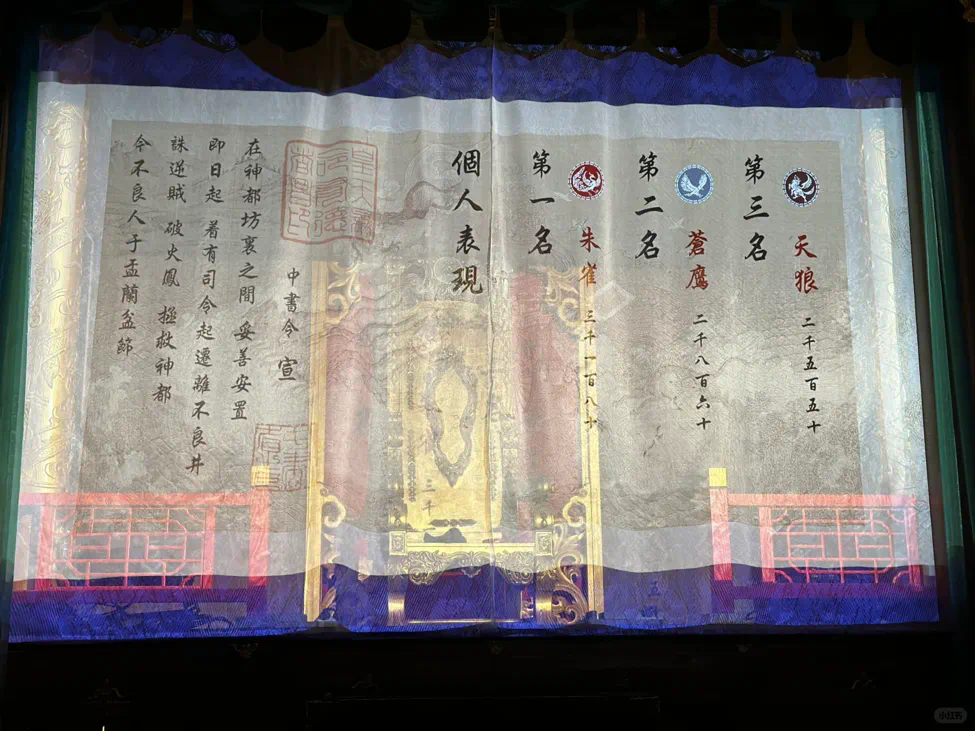 今不良人于盂蘭盆節
誅逆賊 破火鳳 拯救神都
即日起 着有司令起遷離不良井
在神都坊裏之間 妥善安置
中書令 宣
個人表現
第一名
朱雀 三千一百八十
第二名
蒼鷹 二千八百六十
第三名
天狼 二千五百五十
小红书